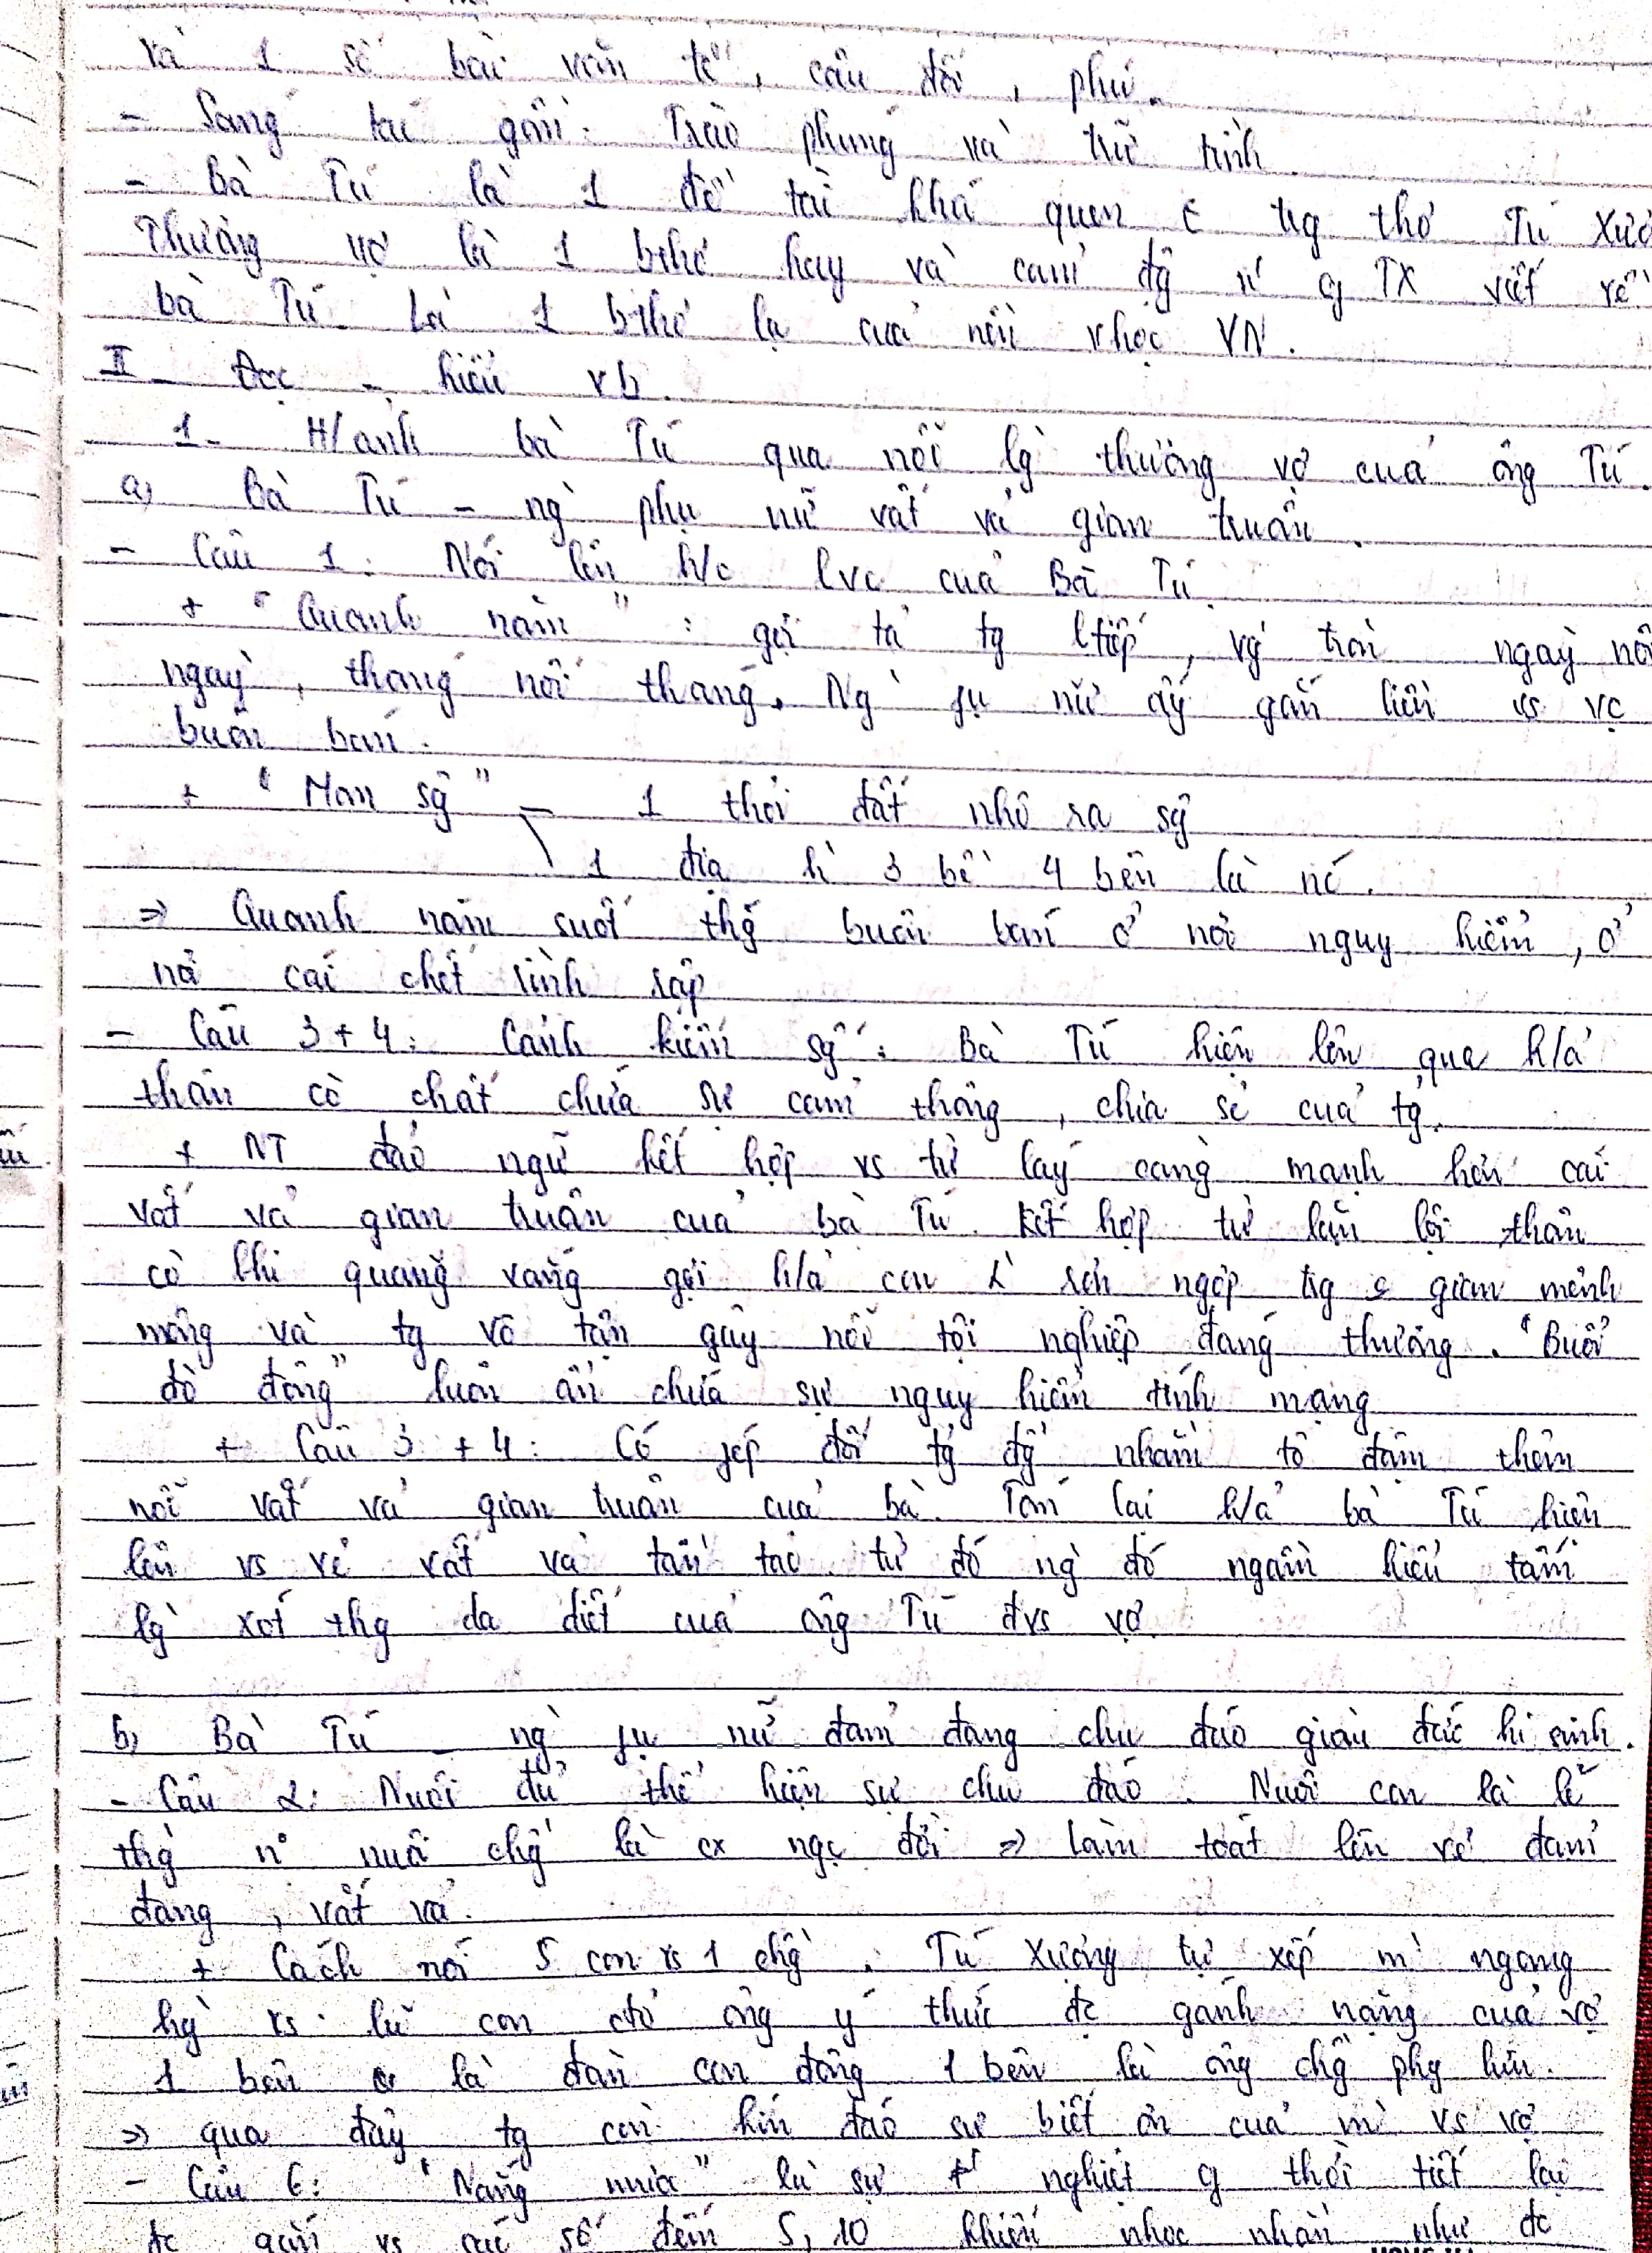 và 1 số bài văn tế, câu đối, phú.
- Sáng tác gồm: Trào phúng và trữ tình
- Bà Tú là 1 đề tài khá quen trg thơ Tú Xươ
Thương vợ là 1 bthơ hay và cảm đg TX viết về
bà Tú. Là 1 bthơ lạ của nền vhọc VN.
II - Đọc - hiểu vb.
1- H/ảnh bà Tú qua nỗi lg thương vợ của ông Tú.
a) Bà Tú - ng phụ nữ vất vả gian truân.
- Câu 1: Nói lên h/c lvc của Bà Tú.
+ "Quanh năm": gợi tả tg ltiếp, ngày nố
ngày, tháng nối tháng. Ng fụ nữ ấy gắn liền vs vc
buôn bán.
+ "Mom sg" - 1 thỏi đất nhô ra sg
1 địa h 3 bề 4 bên là nc.
=> Quanh năm suốt thg buôn bán ở nơi nguy hiểm, ở
nơi cái chết rình rập
- Câu 3 + 4: Cảnh kiếm sg: Bà Tú hiện lên qua h/ả
thân cò chất chứa sự cảm thông, chia sẻ của tg.
+ NT đảo ngữ kết hợp vs từ láy càng mạnh hơn cái
vất vả gian truân của bà Tú. Kết hợp từ lặn lội thân
cò khi quãng vắng gợi h/ả con ngợp trg gian mênh
mông và tg vô tận gây nỗi tội nghiệp đáng thương. "Buổi
đò đông" luôn ẩn chứa sự nguy hiểm tính mạng
+ Câu 3 + 4: Có fép đối tg đg nhấm tô đậm thêm
nỗi vất vả gian truân của bà. Tóm lại h/ả bà Tú hiện
lên vs vẻ vất vả tần tảo từ đó ng đó ngầm hiểu tấm
lg xót thg da diết của ông Tú đvs vợ.
b) Bà Tú - ng fụ nữ đảm đang chu đáo giàu đức hi sinh.
- Câu 2: Nuôi đủ thể hiện sự chu đáo. Nuôi con là lẽ
thg n° nuôi chg là cx ngc đời => làm toát lên vẻ đảm
đang, vất vả.
+ Cách nói 5 con vs 1 chg. Tú Xương tự xếp m ngang
hg vs lũ con đó ông ý thức đc gánh nặng của vợ
1 bên là đàn con đông 1 bên là ông chg
=> qua đây tg còn kín đáo sự biết ơn của m vs vợ
- Câu 6: "Nắng mưa" là sự nghiệt g thời tiết lại
đc gắn vs các số đếm 5, 10 khiến nhọc nhằn như đc